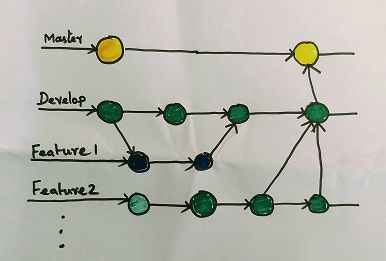 Master
Develop
Feature1
Feature2